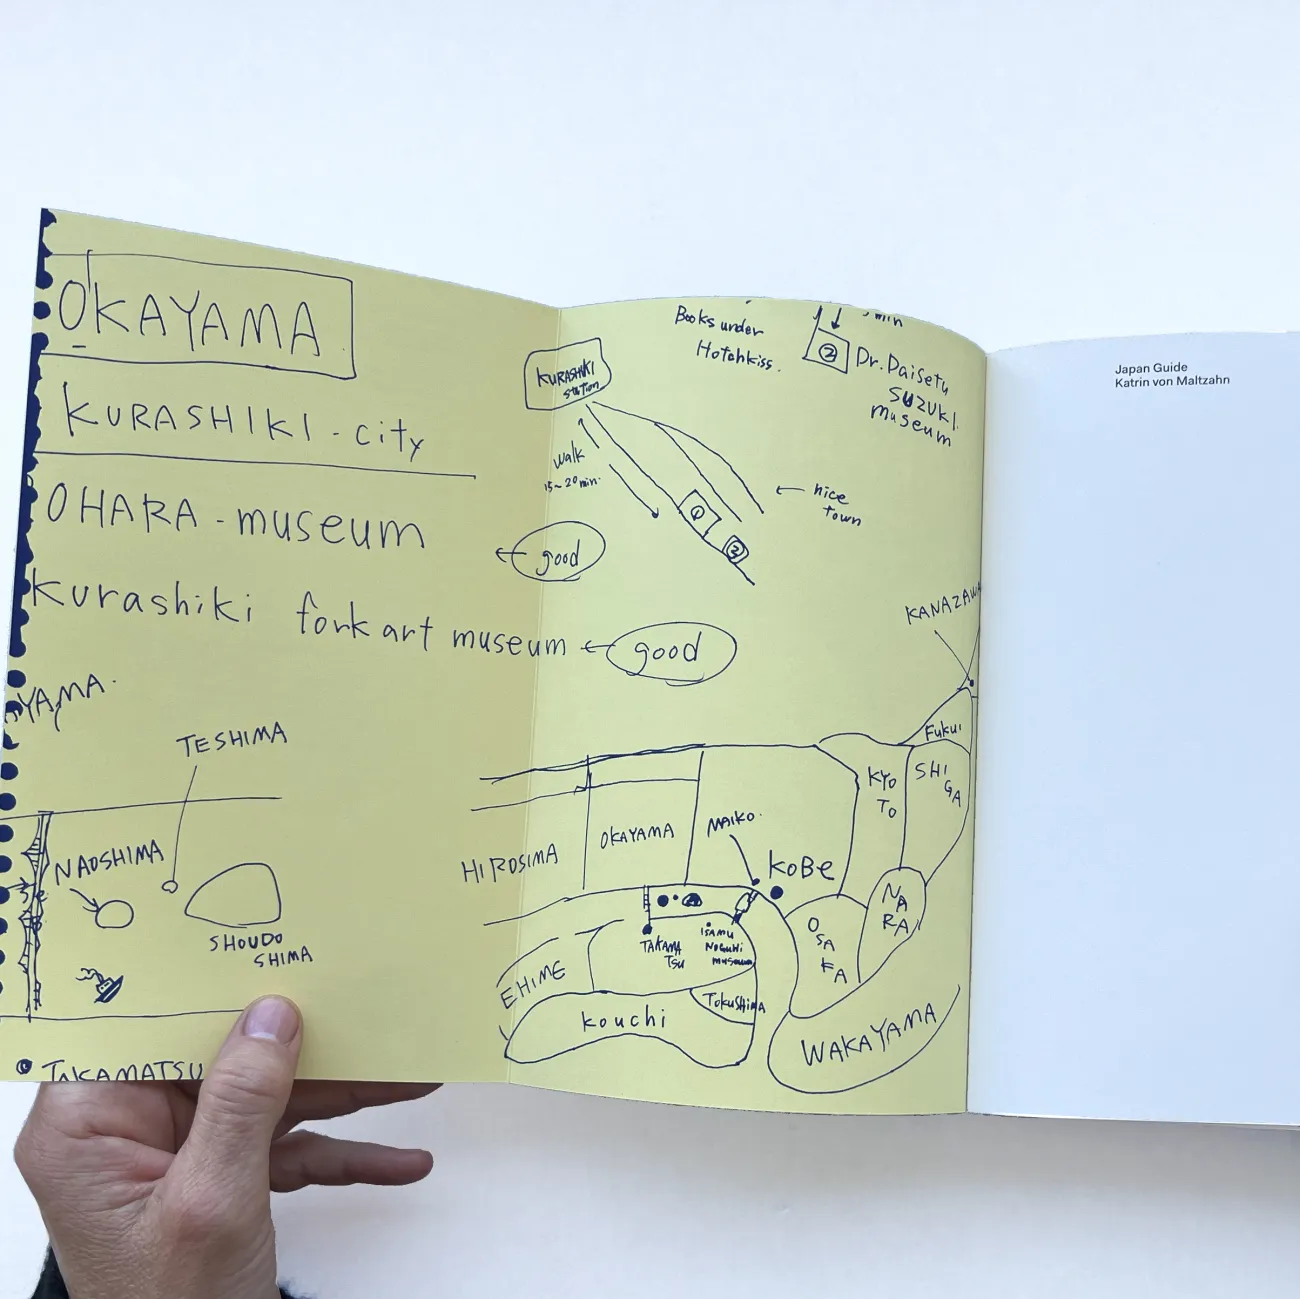 OKAYAMA
KURASHIKI - city
OHARA - museum
← good
Kurashiki fork art museum ← good
YAMA.
TESHIMA
NAOSHIMA
SHOUDO
SHIMA
TAKAMATSU
Books under
Hotchkiss.
min
②
Dr. Daisetu
SUZUKI.
museum
KURASHIKI
station
walk
15~20 min.
①
②
← nice
town
KANAZAWA
Fukui
KYO
TO
SHI
GA
HIROSIMA
OKAYAMA
MAIKO.
KOBe
NA
RA
O
SA
KA
TAKAMA
TSU
ISAMU
NOGUHI
museum
EHIME
TOKUSHIMA
kouchi
WAKAYAMA
Japan Guide
Katrin von Maltzahn